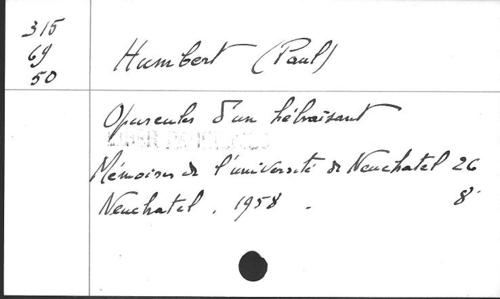 315
69
50
Humbert (Paul)
Opuscules d'un hébraïsant
Mémoires de l'université de Neuchatel 26
Neuchatel. 1958. 8°